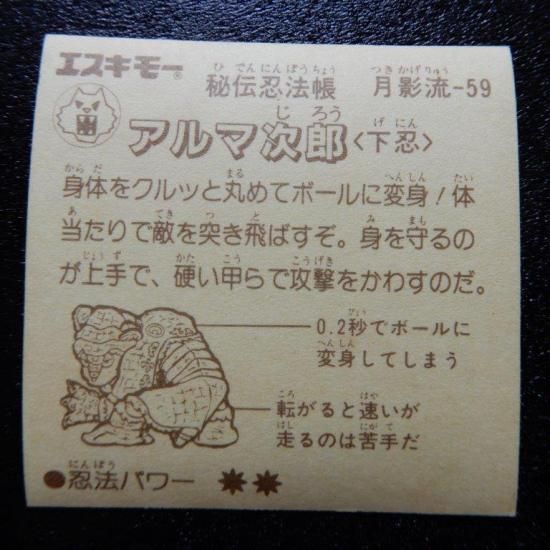 エスキモー® 秘伝忍法帳 月影流-59
アルマ次郎〈下忍〉
身体をクルッと丸めてボールに変身!体
当たりで敵を突き飛ばすぞ。身を守るの
が上手で、硬い甲らで攻撃をかわすのだ。
0.2秒でボールに
変身してしまう
転がると速いが
走るのは苦手だ
●忍法パワー